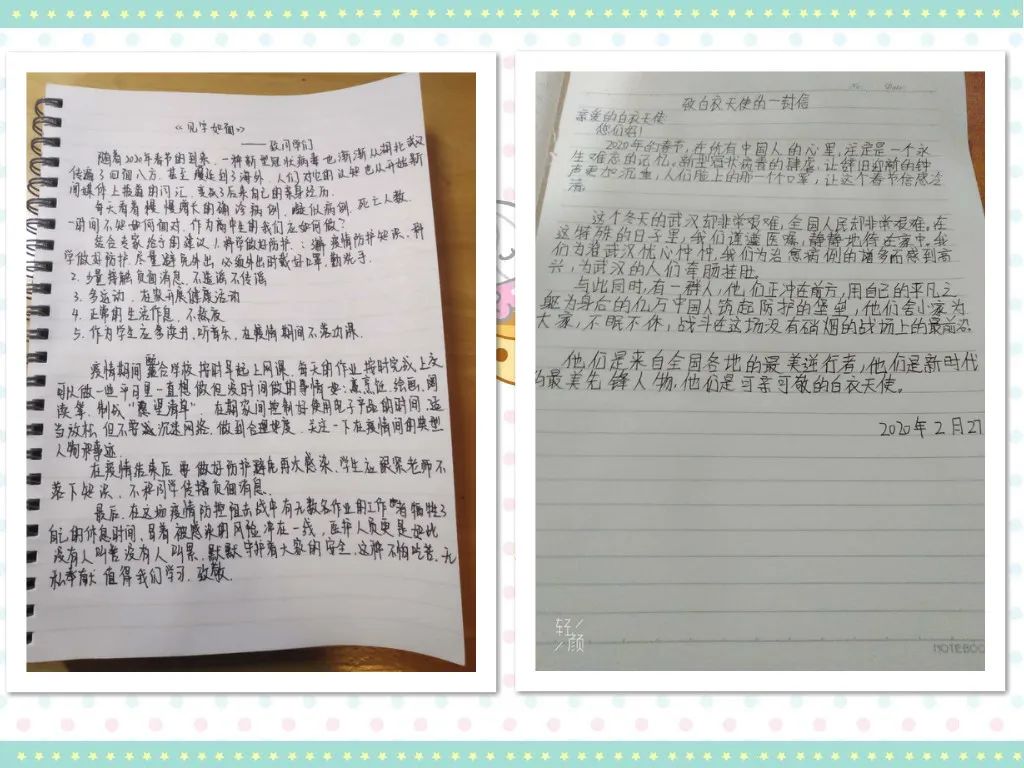 《见字如面》
——致同学们
随着2020年春节的到来，一种新型冠状病毒也渐渐从湖北武汉
传遍了四面八方，甚至蔓延到了海外，人们对它的认知也从开始新
闻媒体上报道的词汇，变成了后来自己的亲身经历。
每天看着慢慢增长的确诊病例，疑似病例，死亡人数，
一时间不知如何面对，作为高中生的我们应如何做？
结合专家给予的建议：1.科学做好防护：了解疫情防护知识，科
学做好防护，尽量避免外出，必须外出时戴好口罩，勤洗手。
2. 少量接触负面消息，不造谣不传谣
3. 多运动，在家开展健康活动
4. 正常的生活作息，不熬夜
5. 作为学生应多读书，听音乐，在疫情期间不落功课。
疫情期间配合学校按时早起上网课，每天的作业按时完成上交
可以做一些平日里一直想做但没时间做的事情如：烹饪，绘画，阅
读等，制成“愿望清单”，在期间控制好使用电子产品的时间，适
当放松，但不要沉迷网络，做到合理使度，关注一下在疫情间的典型
人物和事迹。
在疫情结束后要做好防护避免再次感染，学生应跟紧老师不
落下知识，不和同学传播负面消息。
最后，在这场疫情防控阻击战中有无数名作业的工作者牺牲了
自己的休息时间，冒着被感染的风险冲在一线，医护人员更是如此
没有人叫苦没有人叫累，默默守护着大家的安全，这种不怕吃苦，无
私奉献值得我们学习，致敬。
致白衣天使的一封信
亲爱的白衣天使
您们好！
2020年的春节，在所有中国人的心里，注定是一个永
生难忘的记忆，新型冠状病毒的肆虐，让辞旧迎新的钟
声更加沉重，人们脸上的那一个个口罩，让这个春节倍感凄
清。
这个冬天的武汉却非常艰难，全国人民却非常艰难。在
这特殊的日子里，我们谨遵医嘱，静静地待在家中。我
们为着武汉忧心忡忡，我们为治愈病例的增多而感到高
兴，为武汉的人们牵肠挂肚。
与此同时，有一群人，他们正冲在前方，用自己的平凡之
躯为身后的亿万中国人筑起防护的堡垒，他们舍小家为
大家，不眠不休，战斗在这场没有硝烟的战场上的最前沿。
他们是来自全国各地的最美逆行者，他们是新时代
的最美先锋人物，他们是可亲可敬的白衣天使。
2020年2月27
轻颜
NOTEBOO